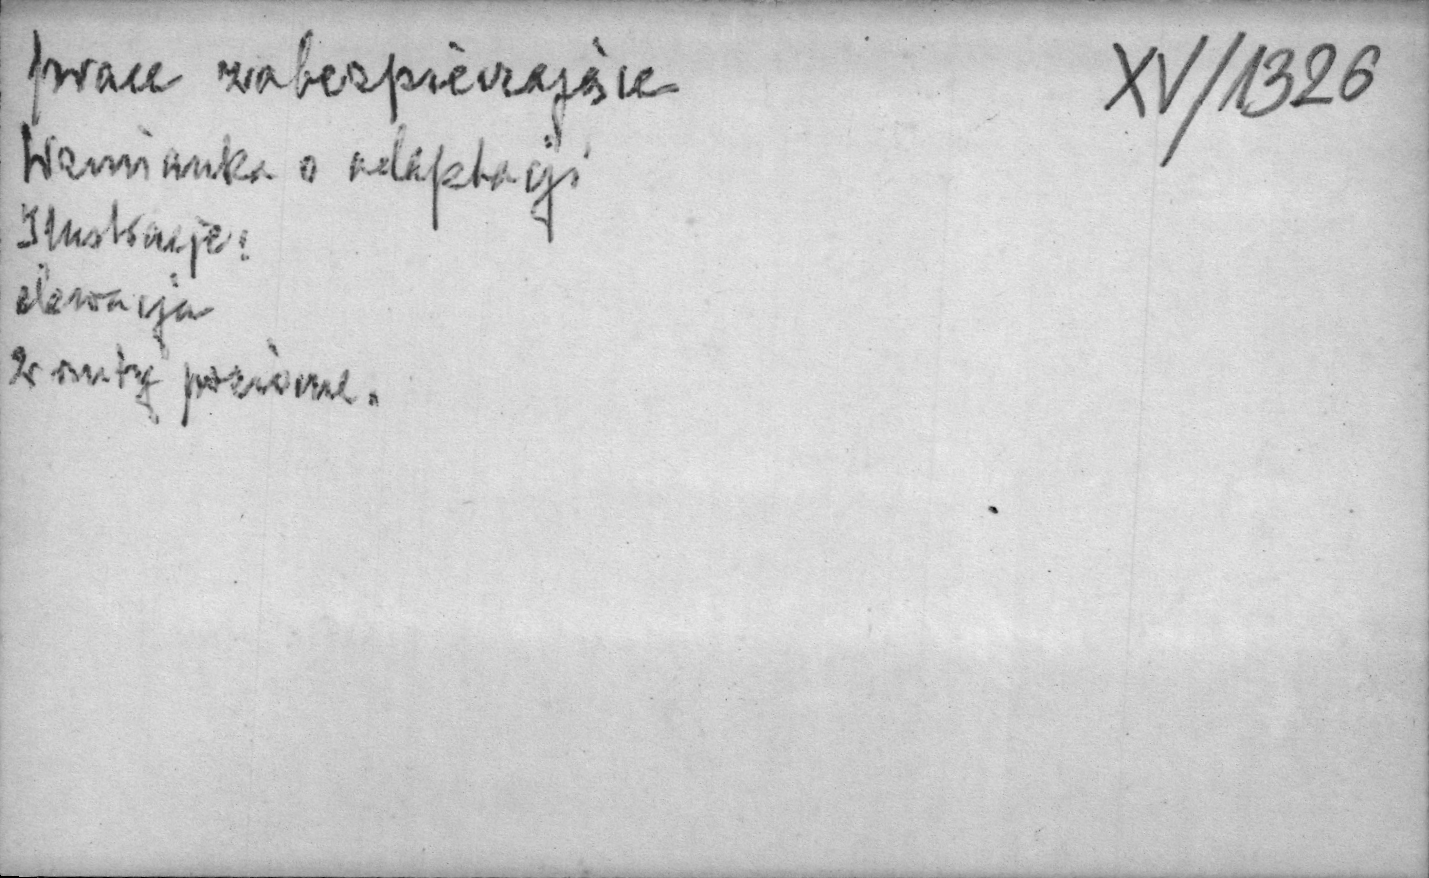 prace zabezpieczające
XV/1326
Wzmianka o adaptacji
Ilustracje:
elewacja
rzuty poziome.